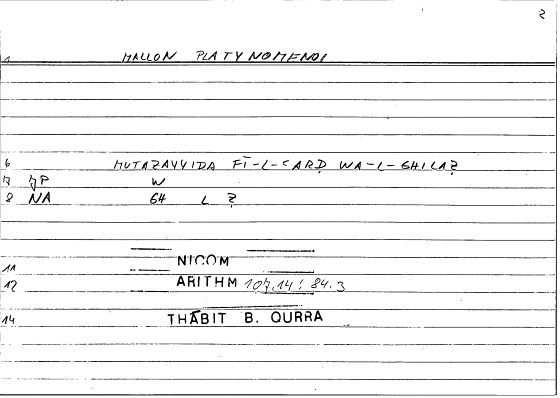 2
1 MALLON PLATYNOMENOI
6 MUTAZAYYIDA FĪ-L-CARḌ WA-L-GHILAẒ
7 JP W
8 NA 64 L 2
11 NICOM
12 ARITHM 107.14: 84.3
14 THĀBIT B. QURRA